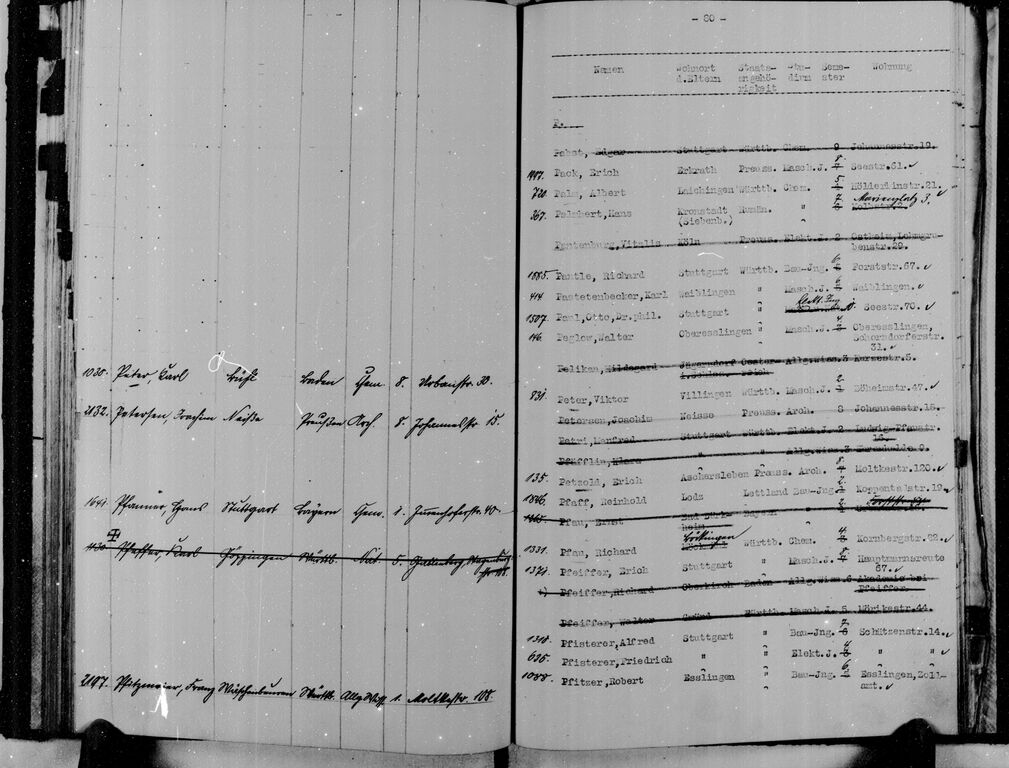 1030. Peter, Carl Baden Chem 8. Urbanstr. 30.
2132. Petersen, Joachim Neiße Preußen Arch 8 Johannesstr 15.
1641. Pfanner, Hans Stuttgart Bayern Chem. 1. 40.
1130 Karl Göppingen Württb. 5.
2197. Pfitzenmaier, Franz Württb. Allg Wiss 1. Moltkestr. 108.
- 80 -
Namen Wohnort Staats- Stu- Seme- Wohnung
d.Eltern angehö- dium ster
rigkeit
P.
Pabst, Edgar Stuttgart Württb. Chem. 9 Johannesstr.19.
Pack, Erich Erkrath Preuss. Masch.J. 8 Seestr.61.
720. Palm, Albert Laichingen Württb. Chem. 5 Hölderlinstr.21.
7 Marienplatz 3.
367. Palmhert, Hans Kronstadt Rumän. "
(Siebenb.)
Pantenburg, Vitalis Köln Preuss. Elekt.J. 2 Ostheim,
benstr.29.
1885. Pantle, Richard Stuttgart Württb. Bau-Jng. 6 Forststr.67.
414 Pastetenbecker, Karl Waiblingen " Masch.J. 6 Waiblingen.
1507. Paul, Otto, Dr.phil. Stuttgart " Elekt. Ing Seestr.70.
146. Peglow, Walter Oberesslingen " Masch.J. 4 Oberesslingen,
Schorndorferstr.
31.
Peliken, Hildegard Jägerndorf Oester- Allg.wiss. 3 Kernerstr.5.
831. Peter, Viktor Villingen Württb. Masch.J. 2 Böheimstr.47.
Petersen, Joachim Neisse Preuss. Arch. 8 Johannesstr.15.
Petri, Manfred Stuttgart Württb. Elekt.J. 2 Ludwig-Pfaustr.
Pfäfflin, Klara " " Allg.wiss. 3
135. Petzold, Erich Aschersleben Preuss. Arch. 8 Moltkestr.120.
1846. Pfaff, Reinhold Lodz Lettland Bau-Jng. 2
Pfau, Ernst Bayern
heim
1331. Pfau, Richard Böttingen Württb. Chem. 4 Kornbergstr.22.
1371. Pfeiffer, Erich Stuttgart " Masch.J. 8 Hauptmannsreute
67.
Pfeiffer, Richard Oberkirch Baden Allg.wiss. 6 Akademie bei
Pfeiffer.
Pfeiffer, Walter Gmünd Württb. Masch.J. 5 Mörikestr.44.
1318. Pfisterer, Alfred Stuttgart " Bau-Jng. 7 Schützenstr.14.
635. Pfisterer, Friedrich " " Elekt.J. 4 " "
1088. Pfitzer, Robert Esslingen " Bau-Jng. 6 Esslingen, Zoll-
amt.